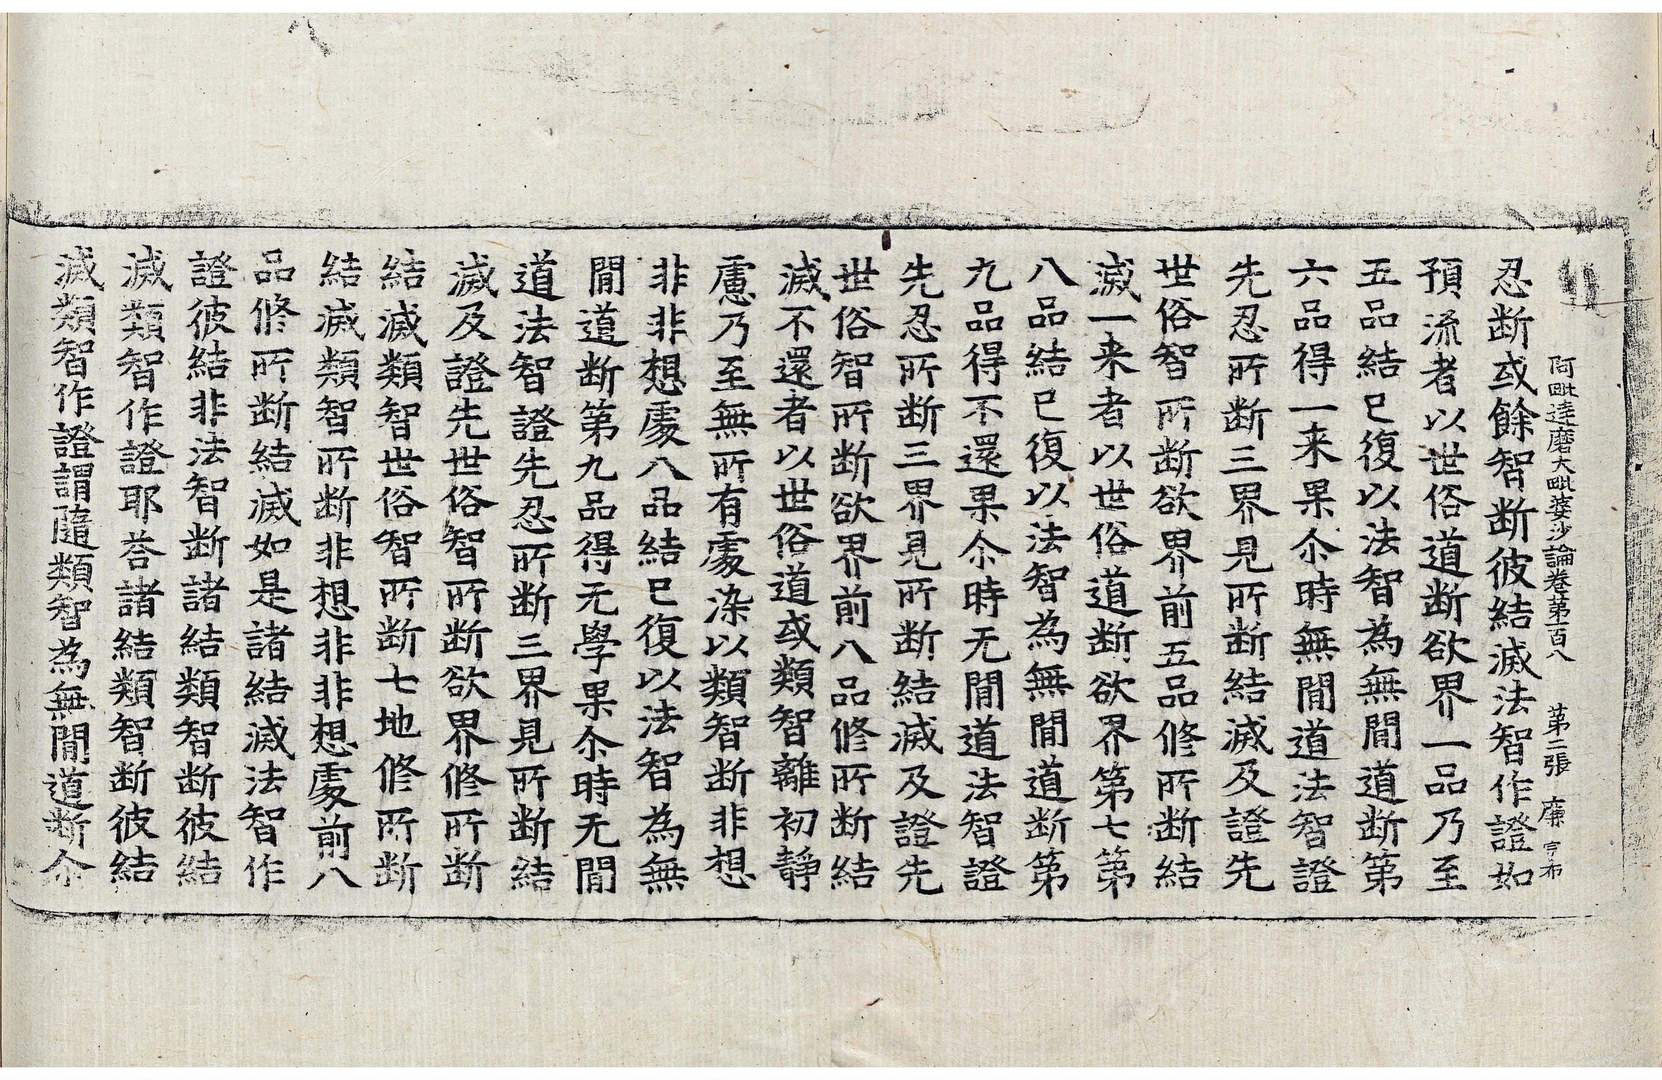 阿毗達磨大毗婆沙論卷第一百八 第二張 廉 宗布
忍断或餘智断彼結滅法智作證如
預流者以世俗道断欲界一品乃至
五品結已復以法智為無閒道断第
六品得一来果尒時無閒道法智證
先忍所断三界見所断結滅及證先
世俗智所断欲界前五品修所断結
滅一来者以世俗道断欲界第七第
八品結已復以法智為無閒道断第
九品得不還果尒時无閒道法智證
先忍所断三界見所断結滅及證先
世俗智所断欲界前八品修所断結
滅不還者以世俗道或類智離初靜
慮乃至無所有處染以類智断非想
非非想處八品結已復以法智為無
閒道断第九品得无學果尒時无閒
道法智證先忍所断三界見所断結
滅及證先世俗智所断欲界修所断
結滅類智世俗智所断七地修所断
結滅類智所断非想非非想處前八
品修所断結滅如是諸結滅法智作
證彼結非法智断諸結類智断彼結
滅類智作證耶荅諸結類智断彼結
滅類智作證謂隨類智為無閒道断尒